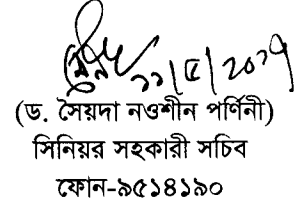 ২২/৫/২০১৭
(ড. সৈয়দা নওশীন পর্ণিনী)
সিনিয়র সহকারী সচিব
ফোন-৯৫১৪১৯০